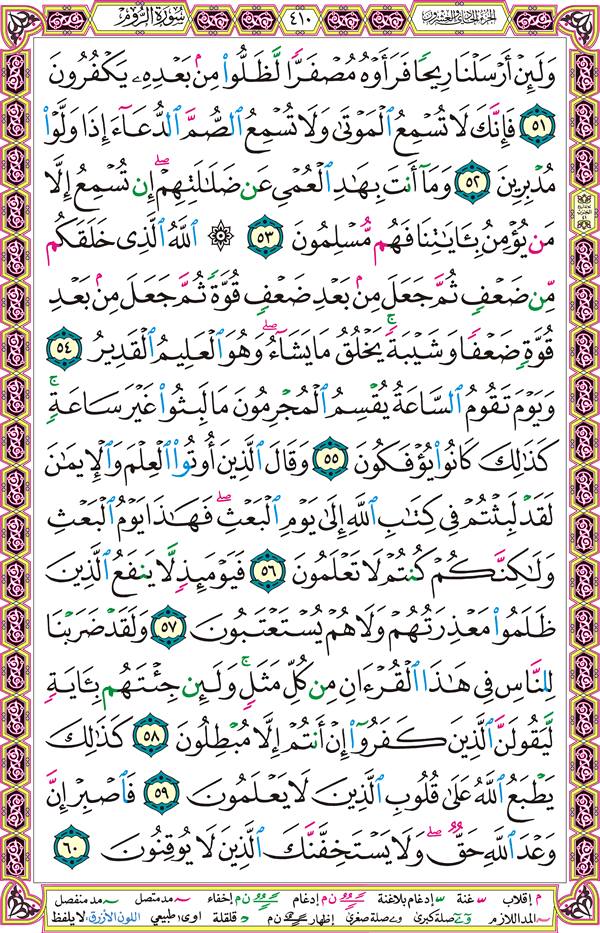 الجزء الحادي والعشرون ٤١٠ سورة الروم
وَلَئِنْ أَرْسَلْنَا رِيحًا فَرَأَوْهُ مُصْفَرًّا لَّظَلُّوا۟ مِنۢ بَعْدِهِۦ يَكْفُرُونَ
٥١ فَإِنَّكَ لَا تُسْمِعُ ٱلْمَوْتَىٰ وَلَا تُسْمِعُ ٱلصُّمَّ ٱلدُّعَآءَ إِذَا وَلَّوْا۟
مُدْبِرِينَ ٥٢ وَمَآ أَنتَ بِهَـٰدِ ٱلْعُمْىِ عَن ضَلَـٰلَتِهِمْ ۖ إِن تُسْمِعُ إِلَّا
مَن يُؤْمِنُ بِـَٔايَـٰتِنَا فَهُم مُّسْلِمُونَ ٥٣ ۞ ٱللَّهُ ٱلَّذِى خَلَقَكُم
مِّن ضَعْفٍ ثُمَّ جَعَلَ مِنۢ بَعْدِ ضَعْفٍ قُوَّةً ثُمَّ جَعَلَ مِنۢ بَعْدِ
قُوَّةٍ ضَعْفًا وَشَيْبَةً ۚ يَخْلُقُ مَا يَشَآءُ ۖ وَهُوَ ٱلْعَلِيمُ ٱلْقَدِيرُ ٥٤
وَيَوْمَ تَقُومُ ٱلسَّاعَةُ يُقْسِمُ ٱلْمُجْرِمُونَ مَا لَبِثُوا۟ غَيْرَ سَاعَةٍ ۚ
كَذَٰلِكَ كَانُوا۟ يُؤْفَكُونَ ٥٥ وَقَالَ ٱلَّذِينَ أُوتُوا۟ ٱلْعِلْمَ وَٱلْإِيمَـٰنَ
لَقَدْ لَبِثْتُمْ فِى كِتَـٰبِ ٱللَّهِ إِلَىٰ يَوْمِ ٱلْبَعْثِ ۖ فَهَـٰذَا يَوْمُ ٱلْبَعْثِ
وَلَـٰكِنَّكُمْ كُنتُمْ لَا تَعْلَمُونَ ٥٦ فَيَوْمَئِذٍ لَّا يَنفَعُ ٱلَّذِينَ
ظَلَمُوا۟ مَعْذِرَتُهُمْ وَلَا هُمْ يُسْتَعْتَبُونَ ٥٧ وَلَقَدْ ضَرَبْنَا
لِلنَّاسِ فِى هَـٰذَا ٱلْقُرْءَانِ مِن كُلِّ مَثَلٍ ۚ وَلَئِن جِئْتَهُم بِـَٔايَةٍ
لَّيَقُولَنَّ ٱلَّذِينَ كَفَرُوٓا۟ إِنْ أَنتُمْ إِلَّا مُبْطِلُونَ ٥٨ كَذَٰلِكَ
يَطْبَعُ ٱللَّهُ عَلَىٰ قُلُوبِ ٱلَّذِينَ لَا يَعْلَمُونَ ٥٩ فَٱصْبِرْ إِنَّ
وَعْدَ ٱللَّهِ حَقٌّ ۖ وَلَا يَسْتَخِفَّنَّكَ ٱلَّذِينَ لَا يُوقِنُونَ ٦٠
م إقلاب غنة إدغام بلاغنة ن م إدغام ن م إخفاء مد متصل مد منفصل
المد اللازم صلة كبرى صلة صغرى إظهار ن م قلقلة اوى طبيعي اللون الأزرق: لا يلفظ